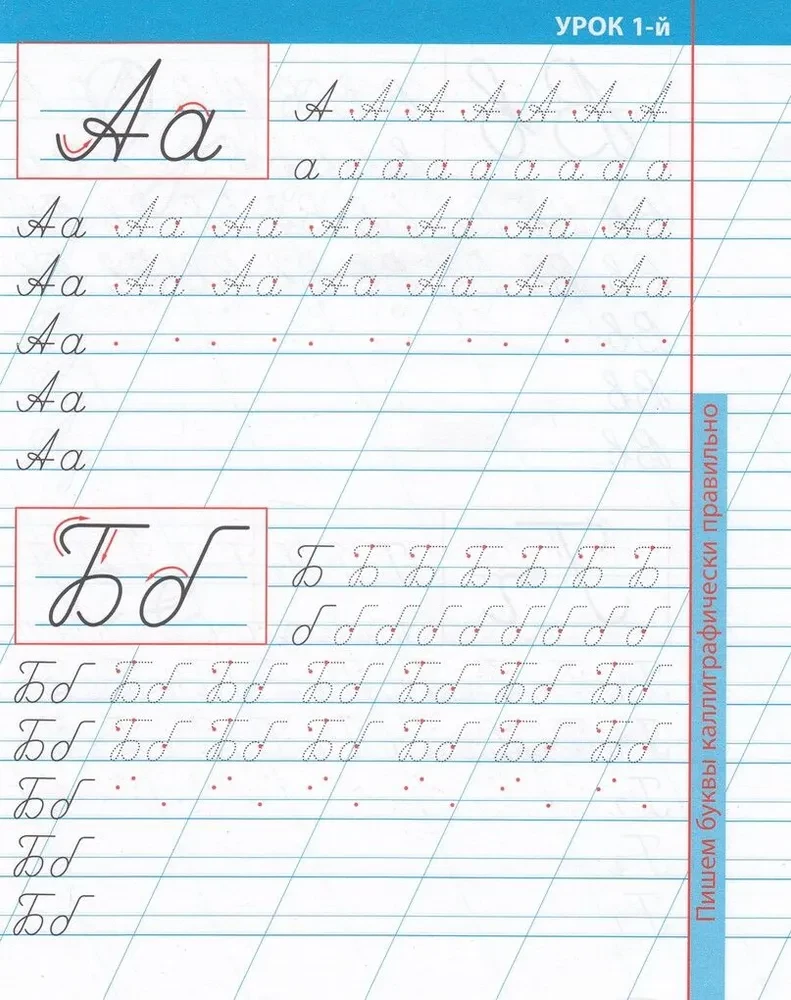 УРОК 1-й
Аа
А А А А А А А
а а а а а а а а а
Аа Аа Аа Аа Аа Аа Аа
Аа Аа Аа Аа Аа Аа Аа
Аа
Аа
Аа
Бб
Б Б Б Б Б Б Б
б б б б б б б б б
Бб Бб Бб Бб Бб Бб Бб
Бб Бб Бб Бб Бб Бб Бб
Бб
Бб
Бб
Пишем буквы каллиграфически правильно